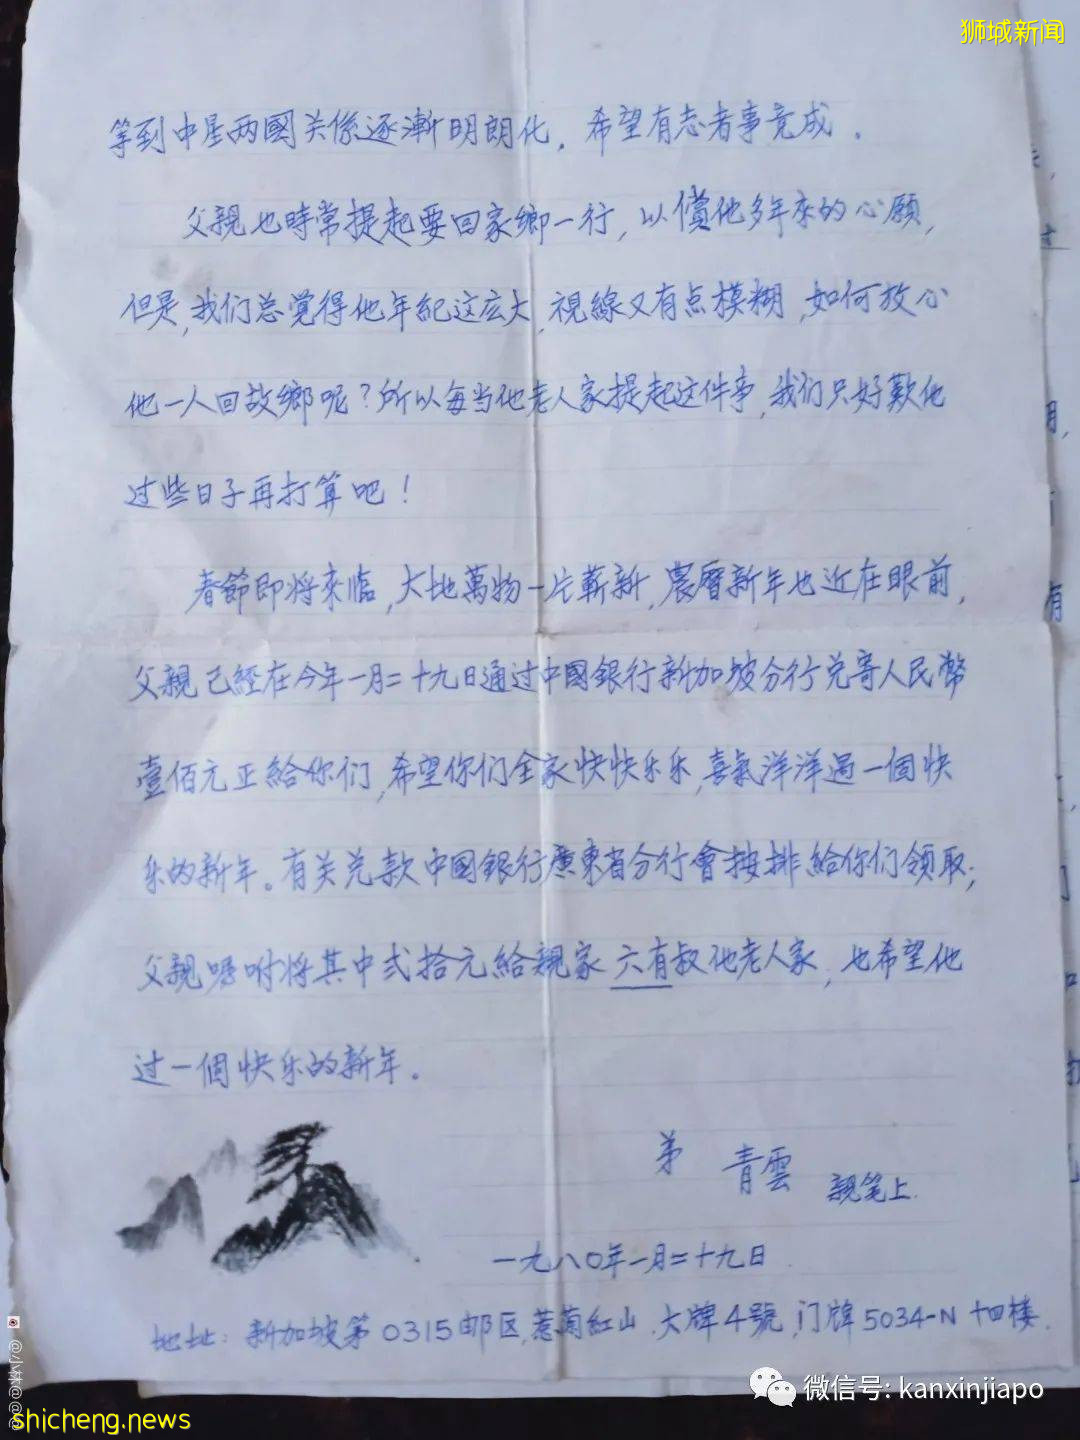 狮城新闻
等到中星两國关係逐漸明朗化，希望有志者事竟成。
父親也時常提起要回家鄉一行，以償他多年來的心願，
但是，我们总覺得他年紀这庅大，視線又有点模糊，如何放心
他一人回故鄉呢？所以每当他老人家提起这件事，我们只好歎他
过些日子再打算吧！
春節即将來临，大地萬物一片蕲新，農曆新年也近在眼前，
父親已經在今年一月二十九日通过中國銀行新加坡分行兑寄人民幣
壹佰元正給你们，希望你们全家快快乐乐，喜氣洋洋過一個快
乐的新年。有关兑款中國銀行廣東省分行會按排給你们领取；
父親嘱咐将其中弍拾元給親家六有叔他老人家，也希望他
过一個快乐的新年。
弟 青雲 親笔上.
一九八〇年一月二十九日
地址：新加坡第0315邮区，惹蘭紅山．大牌4號，门牌5034-N 十四楼.
微信号: kanxinjiapo
shicheng.news